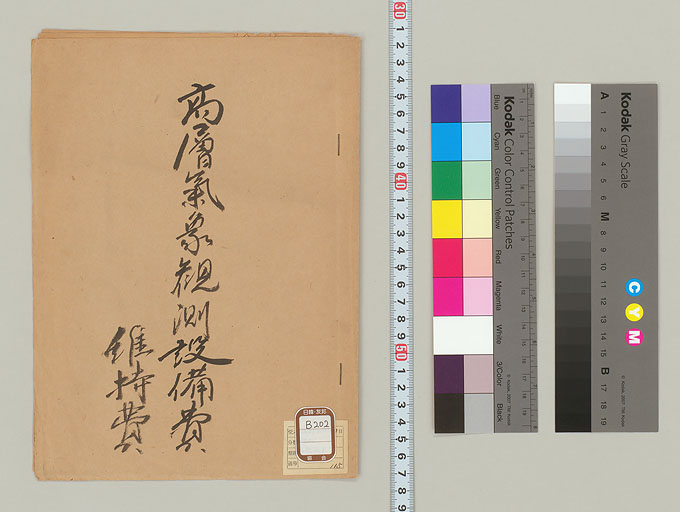 高層氣象観測設備費
維持費
B202
165
30
1
2
3
4
5
6
7
8
9
40
1
2
3
4
5
6
7
8
9
50
1
2
3
4
5
6
7
8
9
Kodak Color Control Patches
Blue
Cyan
Green
Yellow
Red
Magenta
White
3/Color
Black
© Kodak, 2007 TM: Kodak
Kodak Gray Scale
A
1
2
3
4
5
6
M
8
9
10
11
12
13
14
15
B
17
18
19
C
Y
M
© Kodak, 2007 TM: Kodak